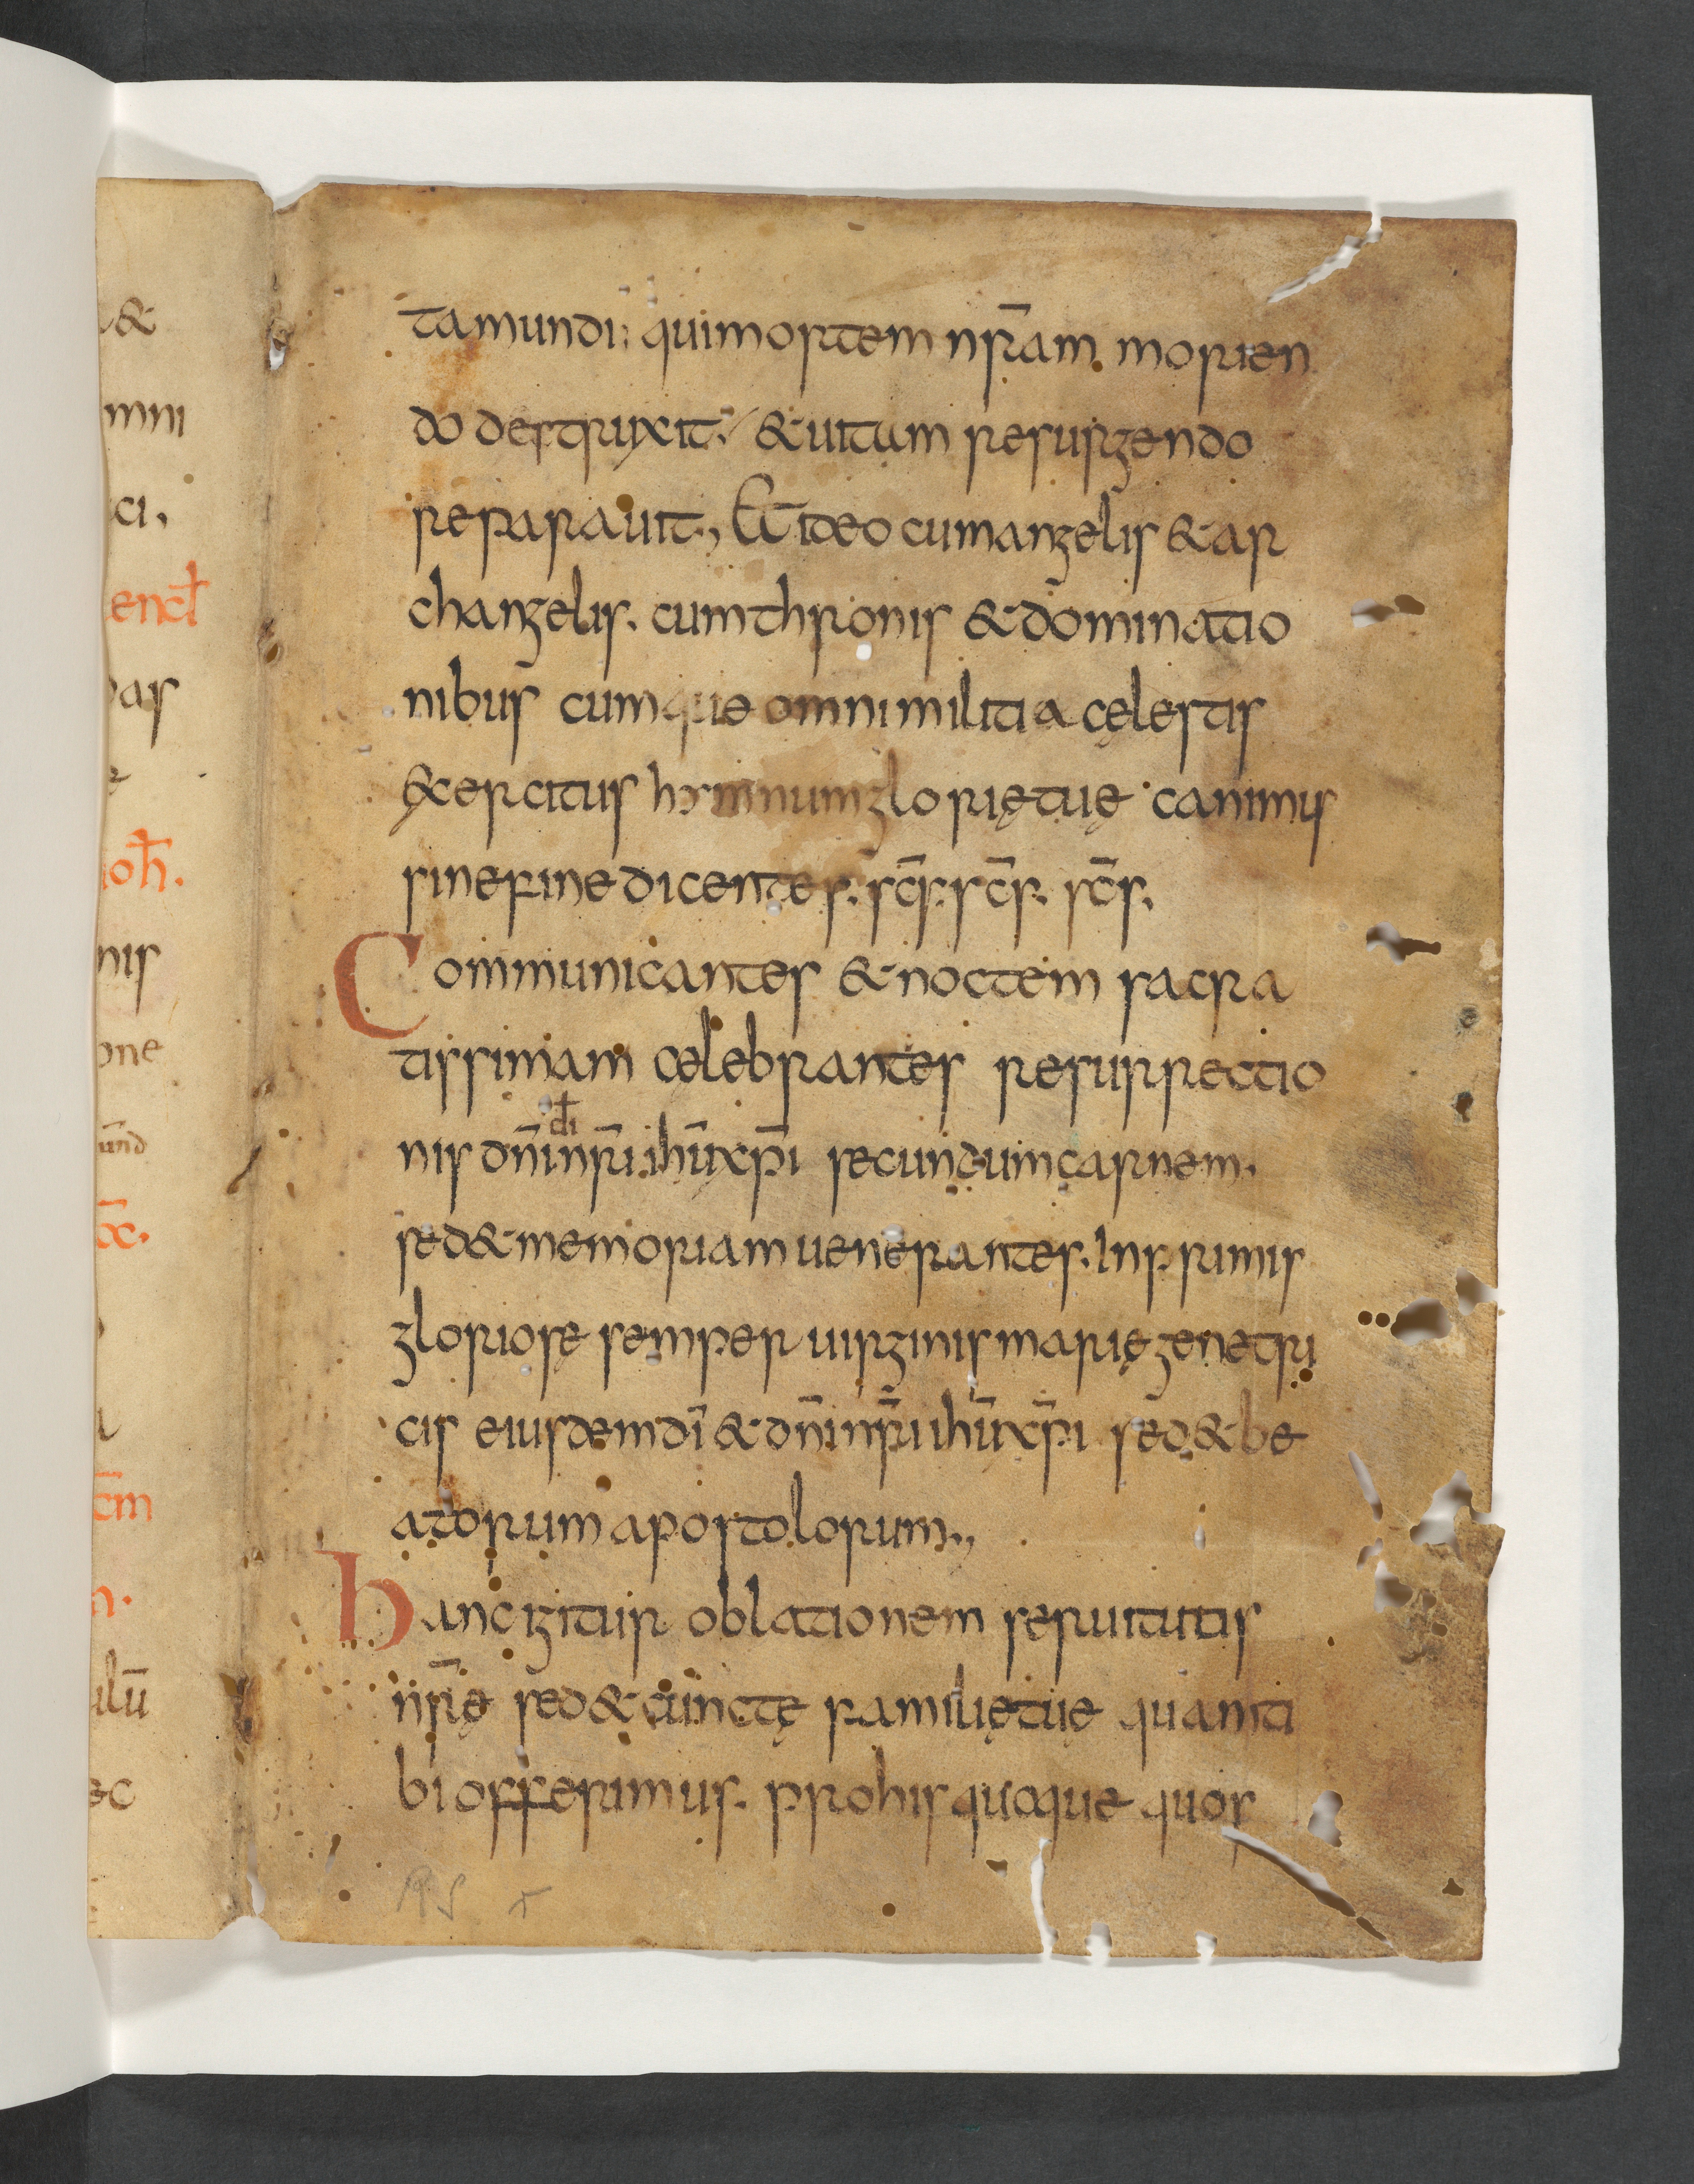 &
mni
ci,
encƚ
as
ioh̄.
nis
one
und
c̄m
n.
ulū
ec
ta mundi; qui mortem nr̄am morien
do destruxit; & uitam resurgendo
reparauit., Et ideo cum angelis & ar
changelis. cum thronis & dominatio
nibus cumque omni militia cęlestis
exercitus hymnum glorię tuę canimus
sine fine dicentes. sc̄s. sc̄s. sc̄s.
Communicantes & noctem sacra
tissimam cęlebrantes resurrectio
di
nis dn̄i nr̄i ihū xp̄i secundum carnem.
sed & memoriam uenerantes. Inprimis
gloriosę semper uirginis marię genetri
cis eiusdem dī & dn̄i nr̄i ihū xp̄i sed & be
atorum apostolorum.,
hanc igitur oblationem seruitutis
nr̄ę sed & cunctę familię tuę quam ti
bi offerimus. pro his quoque quos
RS